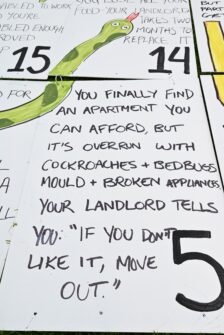 ABLED TO WORK
YOU'RE
ABLED ENOUGH
ROVED
FEED YOUR LANDLORD
TAKES TWO
MONTHS TO
REPLACE IT
15
14
YOU FINALLY FIND
AN APARTMENT YOU
CAN AFFORD, BUT
IT'S OVERRUN WITH
COCKROACHES + BEDBUGS
MOULD + BROKEN APPLIANCES,
YOUR LANDLORD TELLS
YOU: "IF YOU DON'T
LIKE IT, MOVE
OUT."
5